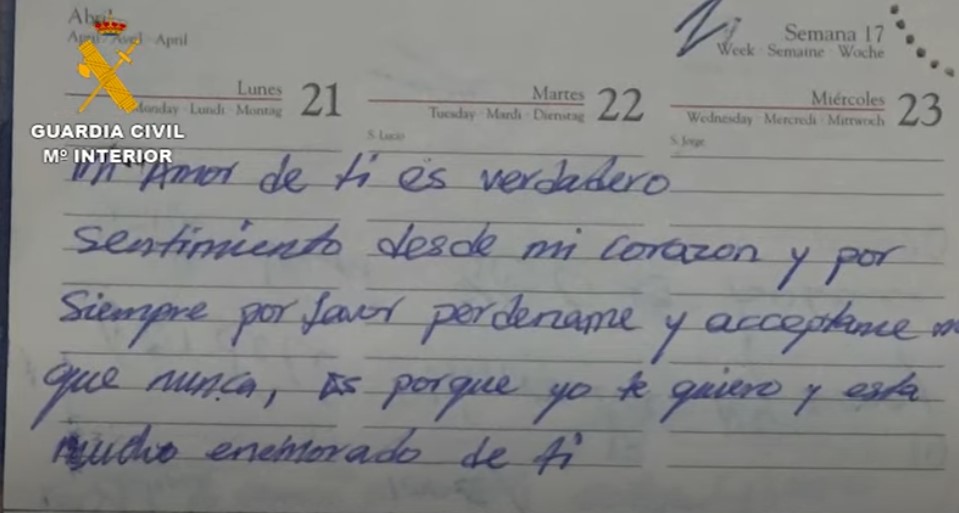 Abril
April · Avril · April
Semana 17
Week · Semaine · Woche
Lunes 21
Monday · Lundi · Montag
Martes 22
Tuesday · Mardi · Dienstag
Miércoles 23
Wednesday · Mercredi · Mittwoch
S. Lucio
S. Jorge
GUARDIA CIVIL
Mº INTERIOR
mi Amor de ti es verdadero
sentimiento desde mi corazon y por
siempre por favor perdename y acceptame
que nunca, es porque yo te quiero y esta
mucho enemorado de ti